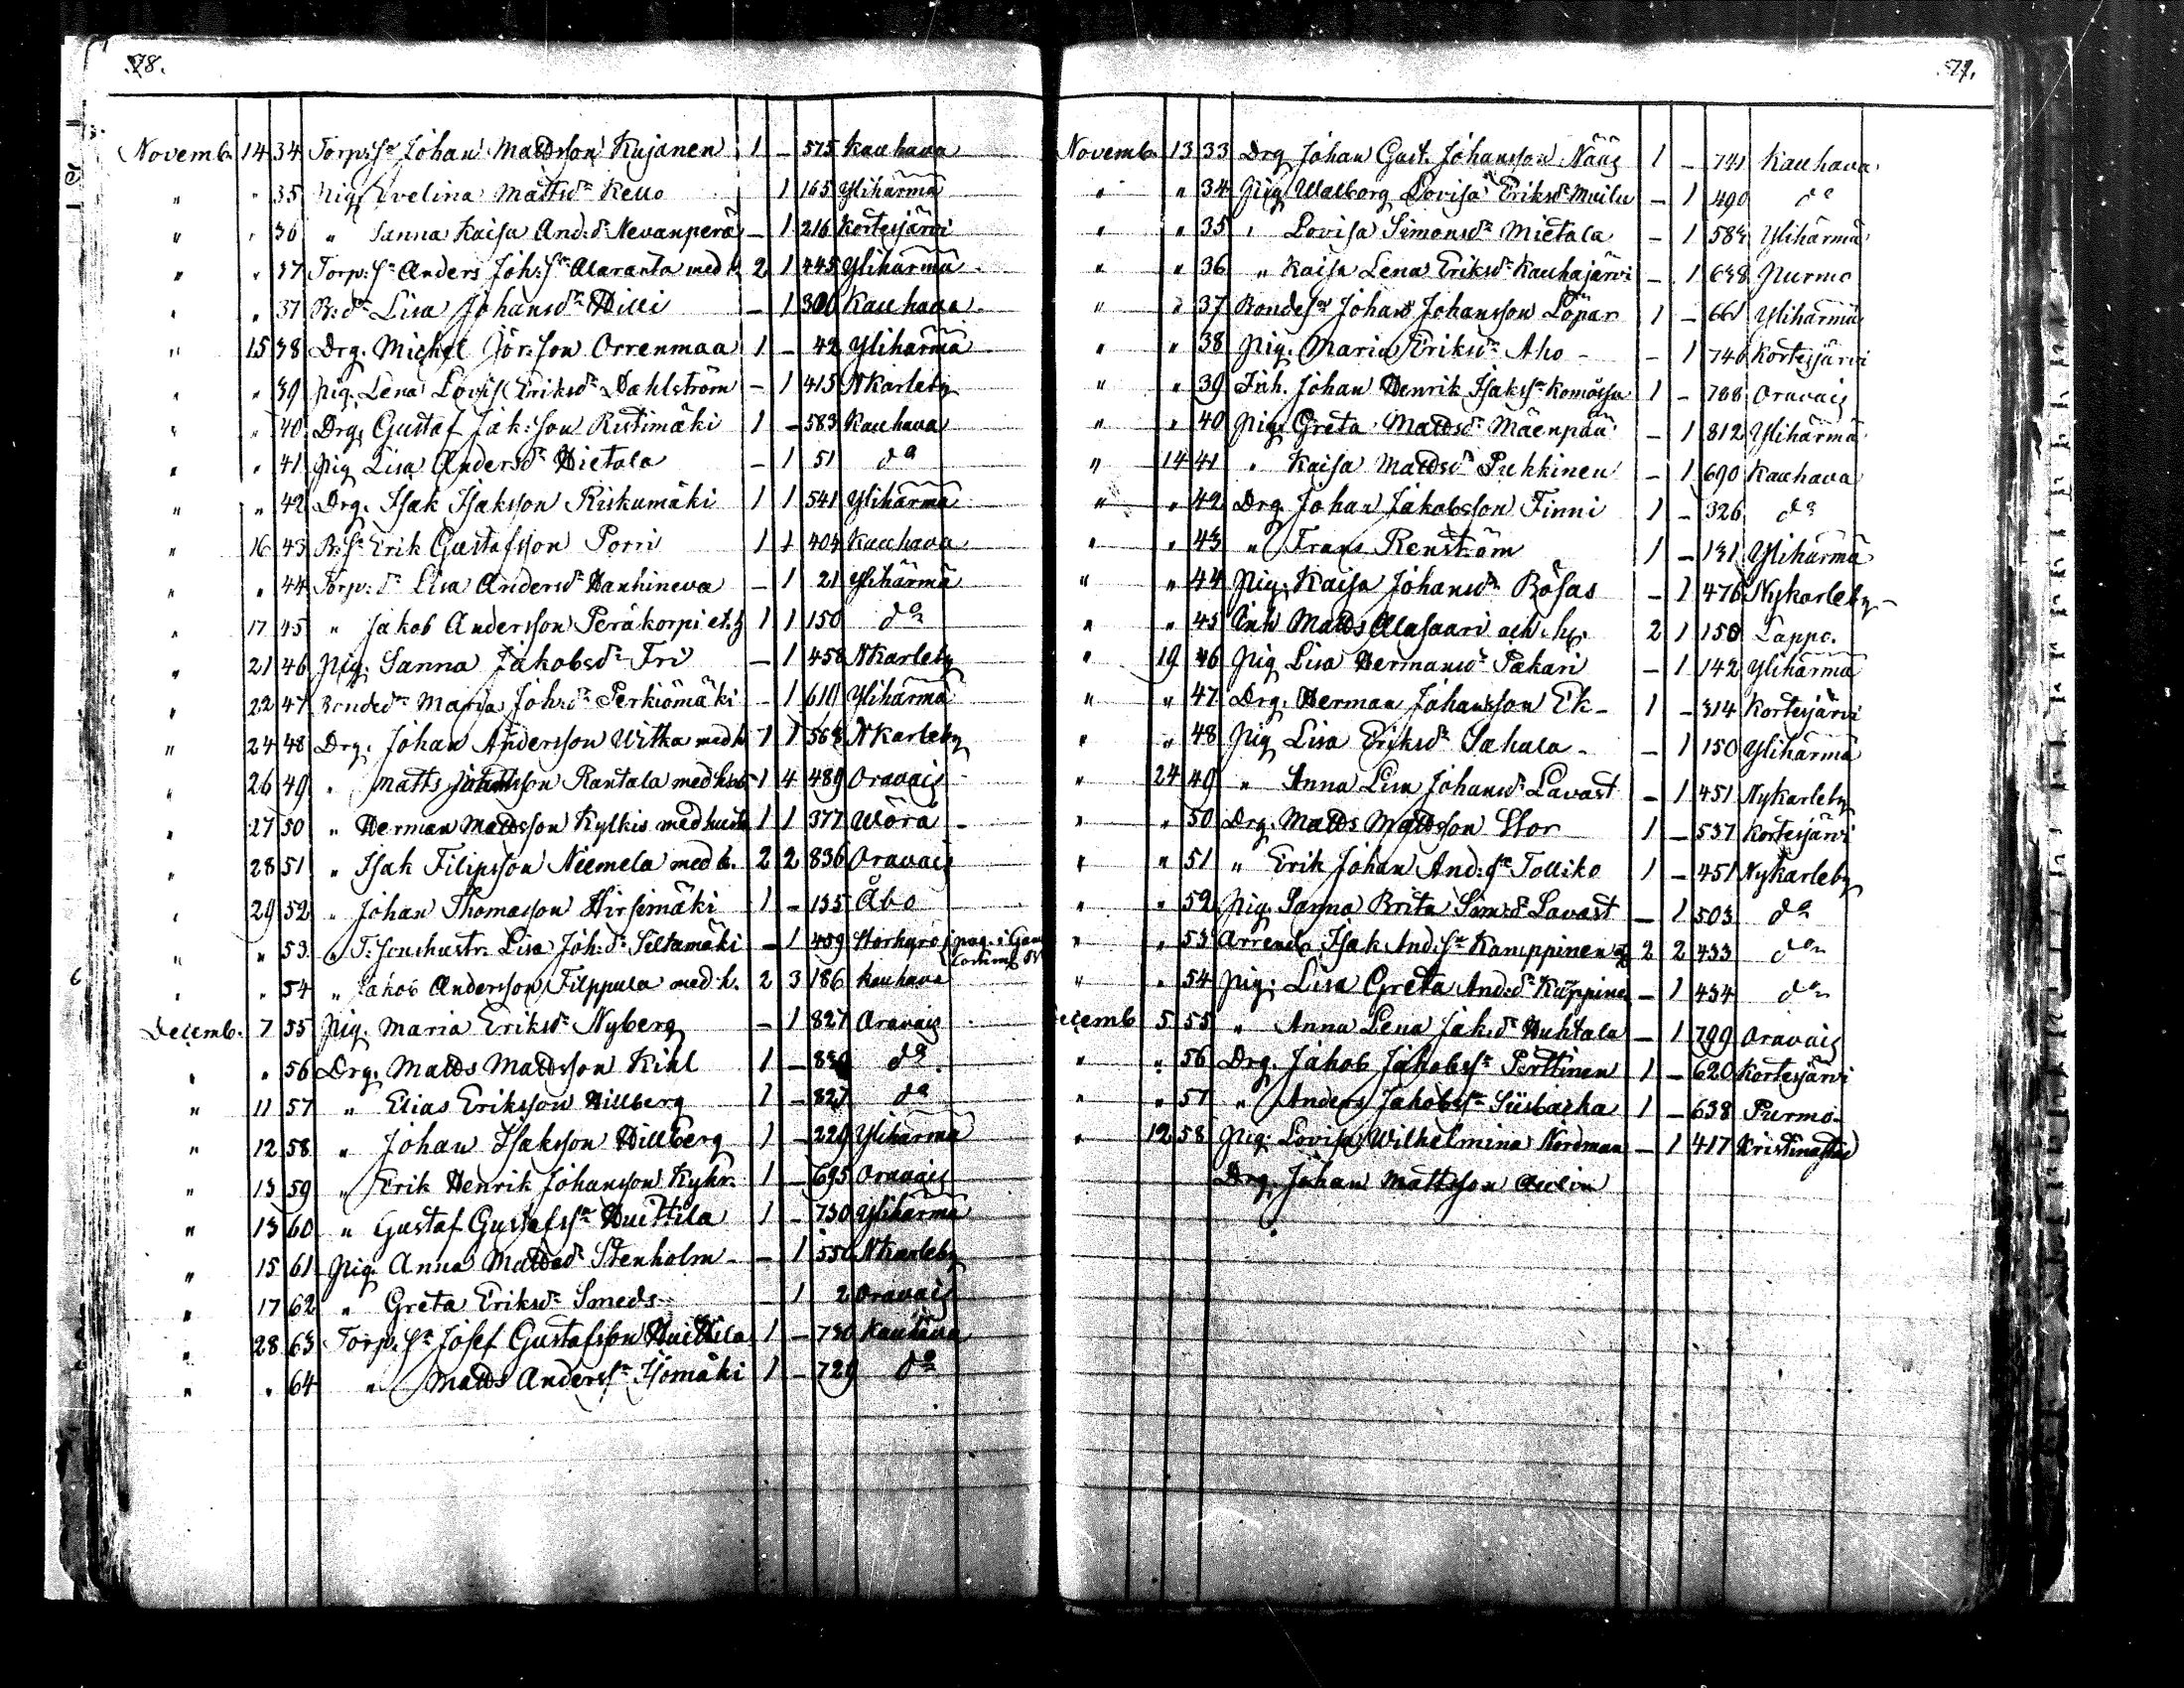 78.
Novemb. 14 34 Torp:sn Johan Mattsson Kujanen 1 - 575 Kauhava
" " 35 Pig. Evelina Mattsdr Keuo 1 165 Ylihärmä
" " 36 " Sanna Kaisa And:dr Nevanperä - 1 216 Kortesjärvi
" " 37 Torp:sn Anders Joh:sn Alaranta med h. 2 1 445 Ylihärmä
" " 37 B:dr Lisa Johansdr Hilli - 1 300 Kauhava
" 15 38 Drg. Michel Jör:son Orrenmaa 1 - 42 Ylihärmä
" " 39 Pig. Lena Lovis Eriksdr Dahlström - 1 415 NKarleby
" " 40 Drg. Gustaf Jak:son Ristimäki 1 - 583 Kauhava
" " 41 Pig Lisa Andersdr Hietala - 1 51 do
" " 42 Drg. Isak Isaksson Riskumäki 1 1 541 Ylihärmä
" 16 43 B:sn Erik Gustafsson Porri 1 1 404 Kauhava
" " 44 Torp:dr Lisa Andersdr Hanhineva - 1 21 Ylihärmä
" 17 45 " Jakob Andersson Peräkorpi et.h 1 1 150 do
" 21 46 Pig. Sanna Jakobsdr Fri - 1 458 NKarleby
" 22 47 Bondedr Maria Joh:dr Perkiömäki - 1 611 Ylihärmä
" 24 48 Drg. Johan Andersson Witka med h 1 1 568 NKarleby
" 26 49 " Matts Rantala med 1 4 489 Oravais
" 27 50 " Herman Mattsson Kylkis med hustr 1 1 377 Wörå
" 28 51 " Isak Filipsson Niemela med h. 2 2 836 Oravais
" 29 52 " Johan Thomasson Hirsimäki 1 - 135 Åbo
" " 53 " T:sonshustr. Lisa Joh:dr Siltamäki - 1 459 Storkyro pag. i
" " 54 " Jakob Andersson Filppula med h. 2 3 186 Kauhava
Decemb. 7 55 Pig. Maria Eriksdr Nyberg - 1 827 Oravais
" " 56 Drg. Matts Mattsson Kihl 1 - 830 do
" 11 57 " Elias Eriksson Hillberg 1 - 827 do
" 12 58 " Johan Isaksson Hillberg 1 - 229 Ylihärmä
" 13 59 " Erik Henrik Johansson Kyhr. 1 - 695 Oravais
" 13 60 " Gustaf Gustafssn Huittila 1 - 730 Ylihärmä
" 15 61 Pig. Anna Mattsdr Stenholm - 1 550 NKarleby
" 17 62 " Greta Eriksdr Smeds - 1 2 Oravais
" 28 63 Torp.sn Josef Gustafsson Huittila 1 - 730 Kauhava
" " 64 " Matts Anderssn Isomäki 1 - 729 do
79.
Novemb. 13 33 Drg Johan Gust. Johansson Näüs 1 - 741 Kauhava
" " 34 Pig Walborg Lovisa Eriksdr Muilu - 1 490 do
" " 35 " Lovisa Simonsdr Mietala - 1 583 Ylihärmä
" " 36 " Kaisa Lena Eriksdr Kauhajärvi - 1 638 Purmo
" " 37 Bondesn Johan Johansson Löpar 1 - 661 Ylihärmä
" " 38 Pig. Maria Eriksdr Aho - 1 746 Kortesjärvi
" " 39 Inh. Johan Henrik Isakssn Komossa 1 - 788 Oravais
" " 40 Pig. Greta Mattsdr Mäenpää - 1 812 Ylihärmä
" 14 41 " Kaisa Mattsdr Puhkinen - 1 690 Kauhava
" " 42 Drg. Johan Jakobsson Finni 1 - 326 do
" " 43 " Frans Renström 1 - 131 Ylihärmä
" " 44 Pig. Kaisa Johansdr Bösas - 1 476 Nykarleby
" " 45 Inh Matts Alasaari och h. 2 1 150 Lappo.
" 19 46 Pig Lisa Hermansdr Pakari - 1 142 Ylihärmä
" " 47 Drg. Herman Johansson Ek 1 - 314 Kortesjärvi
" " 48 Pig Lisa Eriksdr Sahala - 1 150 Ylihärmä
" 24 49 " Anna Lisa Johansdr Lavast - 1 451 Nykarleby
" " 50 Drg. Matts Mattsson Stor 1 - 537 Kortesjärvi
" " 51 " Erik Johan And:sn Tolliko 1 - 451 Nykarleby
" " 52 Pig. Sanna Brita Sim:dr Lavast - 1 503 do
" " 53 Arrend. Isak And:sn Kamppinen 2 2 433 do
" " 54 Pig. Lisa Greta And:dr Kuppine - 1 434 do
ecemb 5 55 " Anna Lena Jak:dr Huhtala - 1 799 Oravais
" " 56 Drg. Jakob Jakobssn Perttinen 1 - 620 Kortesjärvi
" " 57 " Anders Jakobssn Siisbacka 1 - 638 Purmo
" 12 58 Pig. Lovisa Wilhelmina Nordman - 1 417 Kristinastad
Drg. Johan Mattsson Aulin